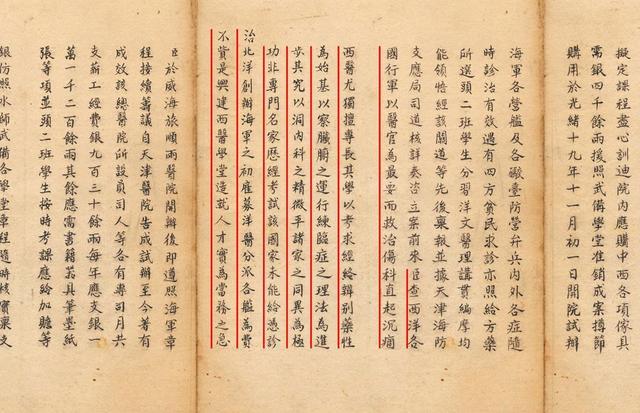 擬定課程盡心訓迪院內應購中西各項傢具
需銀四千餘兩援照武備學堂准銷成案撙節
購用於光緒十九年十一月初一日開院試辦
海軍各營艦及各礮臺防營弁兵內外各症隨
時診治有效遇有四方貧民求診亦照給方藥
所選頭二班學生分習洋文醫理講貫編摩均
能領悟經該關道等先後稟報並據天津海防
支應局司道核詳奏咨立案前來臣查西洋各
國行軍以醫官為最要而救治傷科直起沉痼
西醫尤獨擅專長其學以考求經絡辨別藥性
為始基以察臟腑之運行練臨症之理法為進
步其究以洞內科之精微平諸家之同異為極
功非專門名家歷經考試該國家未能給憑診
治北洋創辦海軍之初雇募洋醫分派各艦為費
不貲是興建西醫學堂造就人才實為當務之急
臣於威海旅順兩醫院開辦後即遵照海軍章
程接續籌議自天津醫院告成試辦至今著有
成效該總醫院所設員司人等各有專司月共
支薪工經費銀九百三十餘兩每年應支銀一
萬一千二百餘兩其餘應需書籍器具筆墨紙
張等項並頭二班學生按時考課應給加贍等
銀仿照水師武備各學堂章程隨時核實稟支